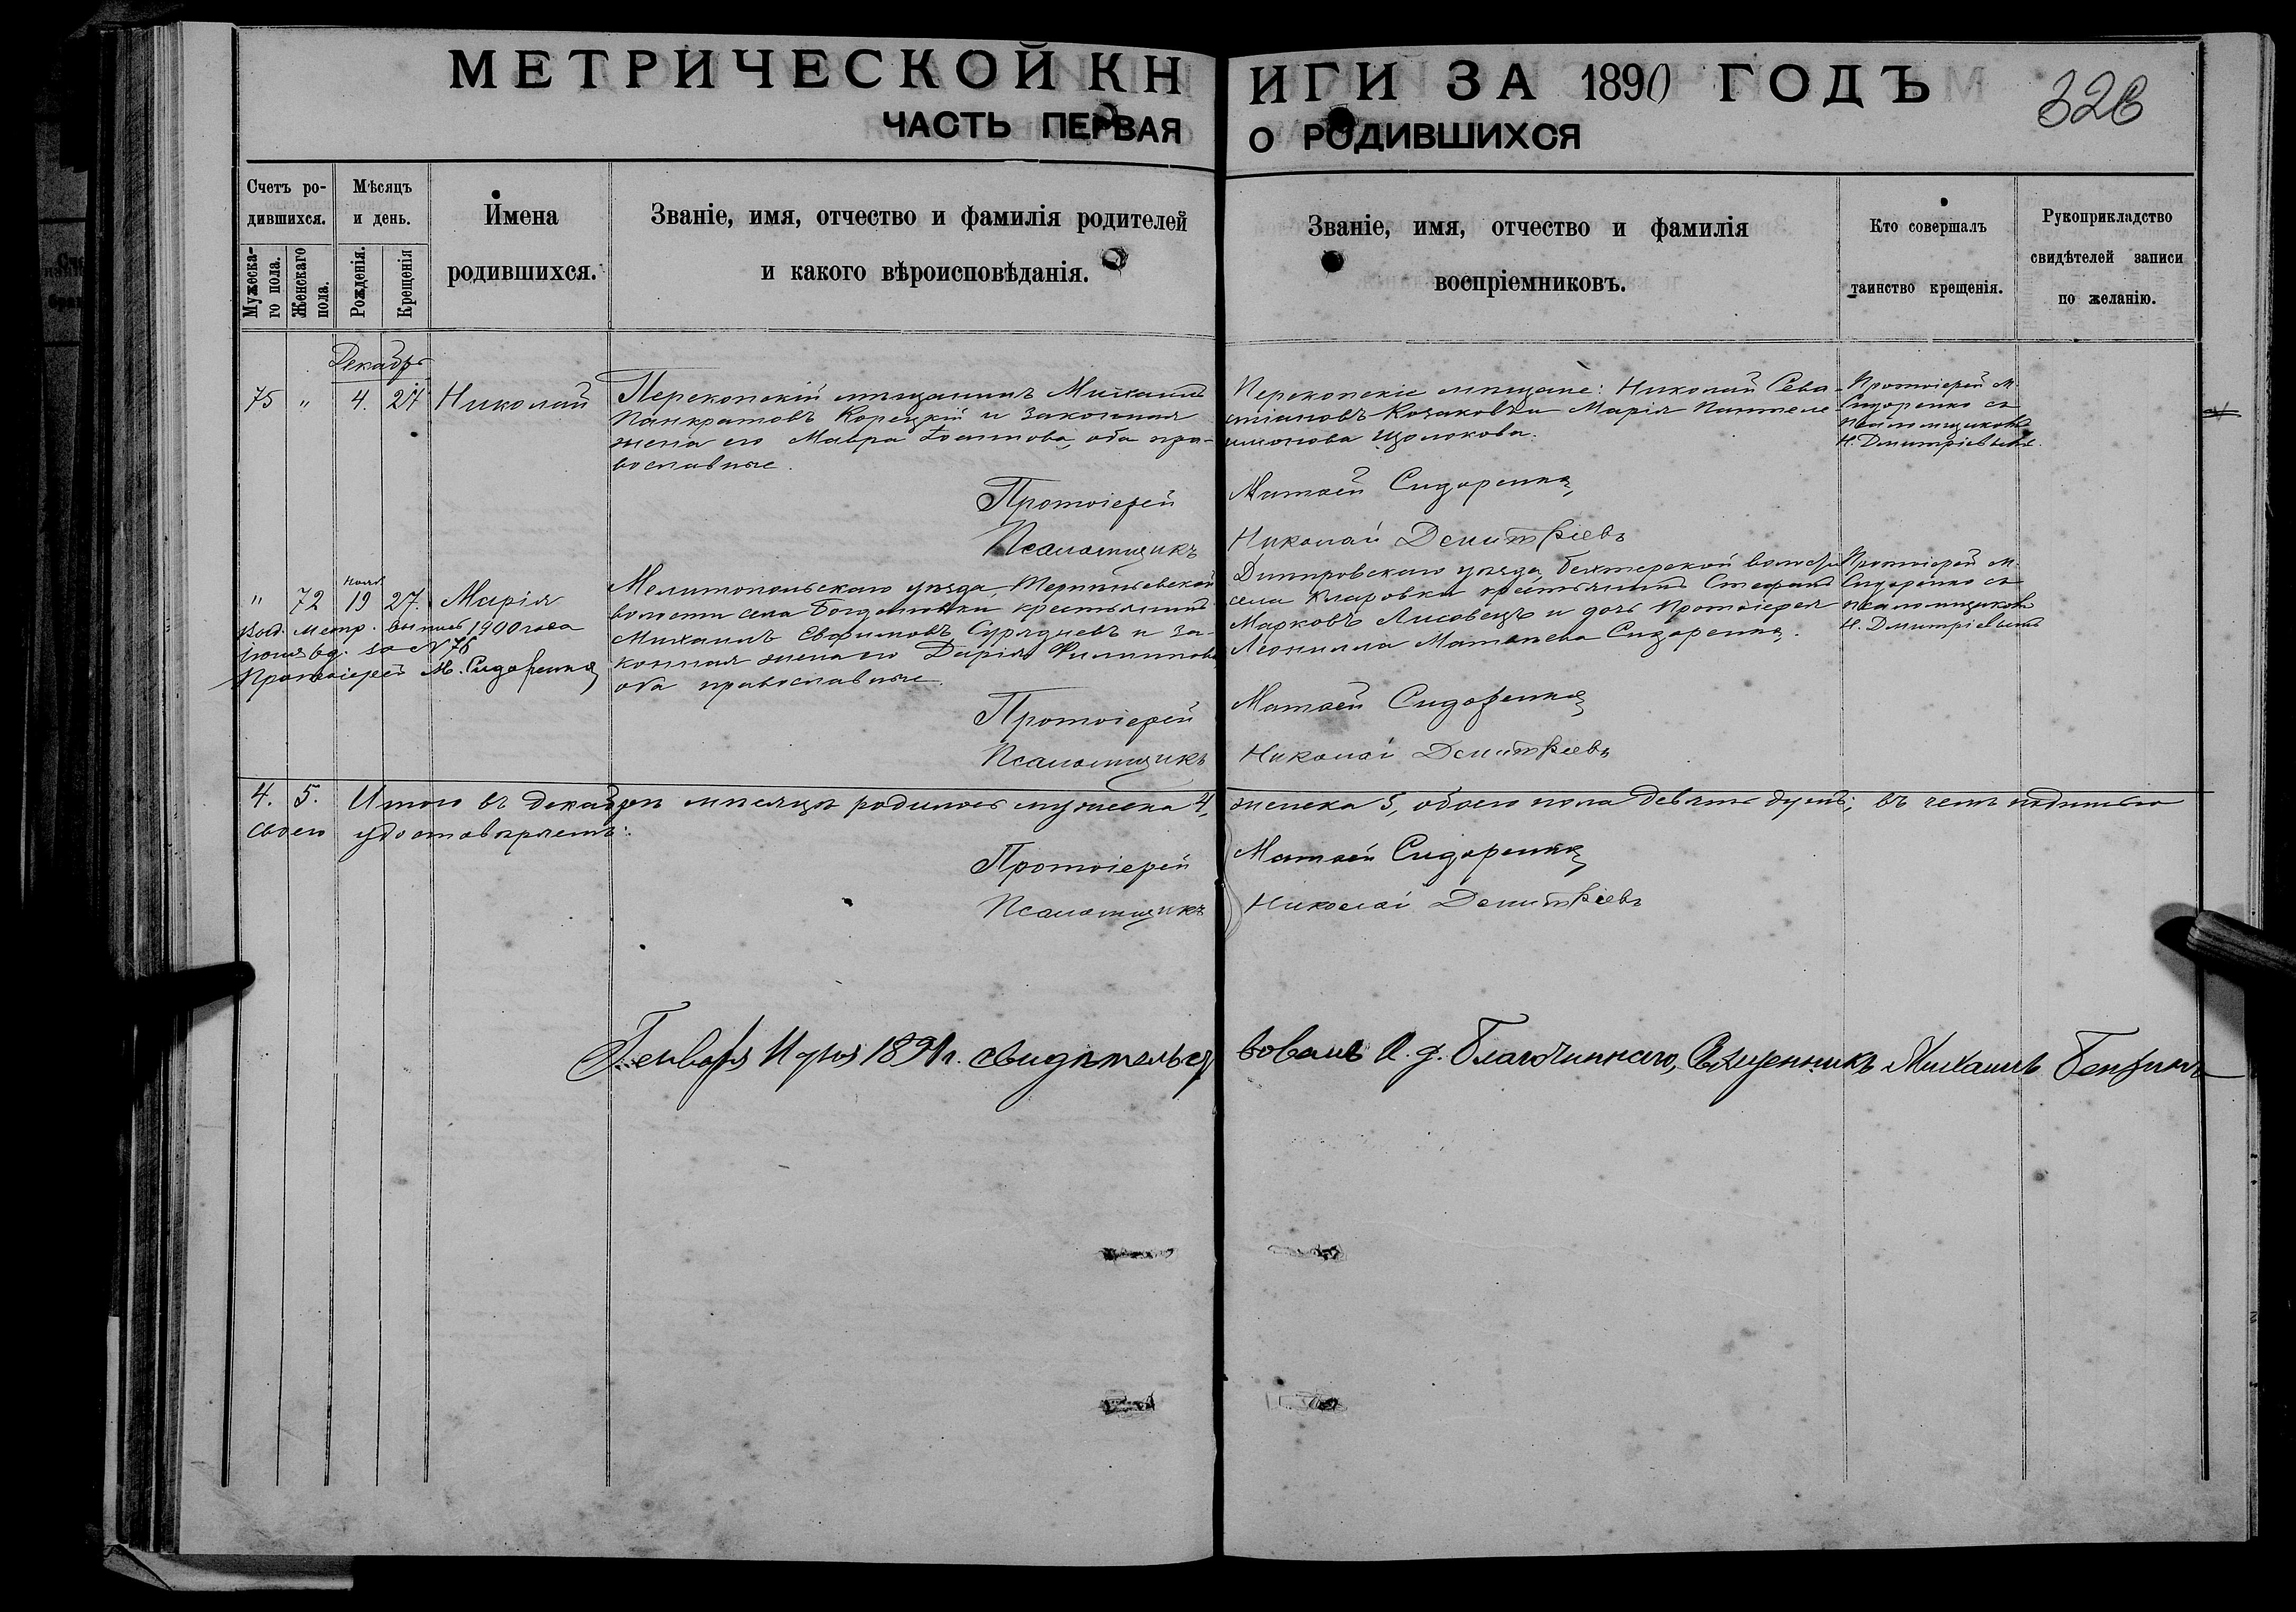 МЕТРИЧЕСКОЙ КНИГИ ЗА 1890 ГОДЪ
326
ЧАСТЬ ПЕРВАЯ О РОДИВШИХСЯ
Счетъ ро-
дившихся.
Мужеска-
го пола.
Женскаго
пола.
Мѣсяцъ
и день.
Рожденія.
Крещенія
Имена
родившихся.
Званіе, имя, отчество и фамилія родителей
и какого вѣроисповѣданія.
Званіе, имя, отчество и фамилія
воспріемниковъ.
Кто совершалъ
таинство крещенія.
Рукоприкладство
свидѣтелей записи
по желанію.
Декабрь
75 " 4. 27 Николай
Перекопскій мѣщанинъ Михаилъ
Панкратовъ Корецкій и законная
жена его Мавра Іоаннова, оба пра-
вославные.
Перекопскіе мѣщане: Николай Сева-
стіановъ Козаковъ и Марія Пантеле-
имонова Щолокова.
Протоіерей М.
Сидоренко съ
псаломщикомъ
Н. Дмитріевымъ.
Протоіерей Матвей Сидоренко
Псаломщикъ Николай Демитріевъ
" 72 нояб. 19 27. Марія
Выд. метр. выпись 1900 года
іюня 6 д. за № 76
Протоіерей М. Сидоренко
Мелитопольскаго уѣзда, Терпѣніевской
волости села Богдановки крестьянинъ
Михаилъ Евфимовъ и за-
конная жена его Дарія Филиппова
оба православные.
Днѣпровскаго уѣзда, Бехтерской волости
села Кларовки крестьянинъ Стефанъ
Марковъ Лисовецъ и дочь Протоіерея
Леонилла Матвеева Сидоренко.
Протоіерей М.
Сидоренко съ
псаломщикомъ
Н. Дмитріевымъ
Протоіерей Матвей Сидоренко
Псаломщикъ Николай Демитріевъ
4. 5. Итого въ декабрѣ мѣсяцѣ родилось мужеска 4, женска 5, обоего пола девять душъ; въ чемъ подписью
своею удостовѣряемъ:
Протоіерей Матвей Сидоренко
Псаломщикъ Николай Демитріевъ
Генваря 11 дня 1891 г. свидѣтельствовалъ И. д. Благочиннаго, Священникъ Михаилъ